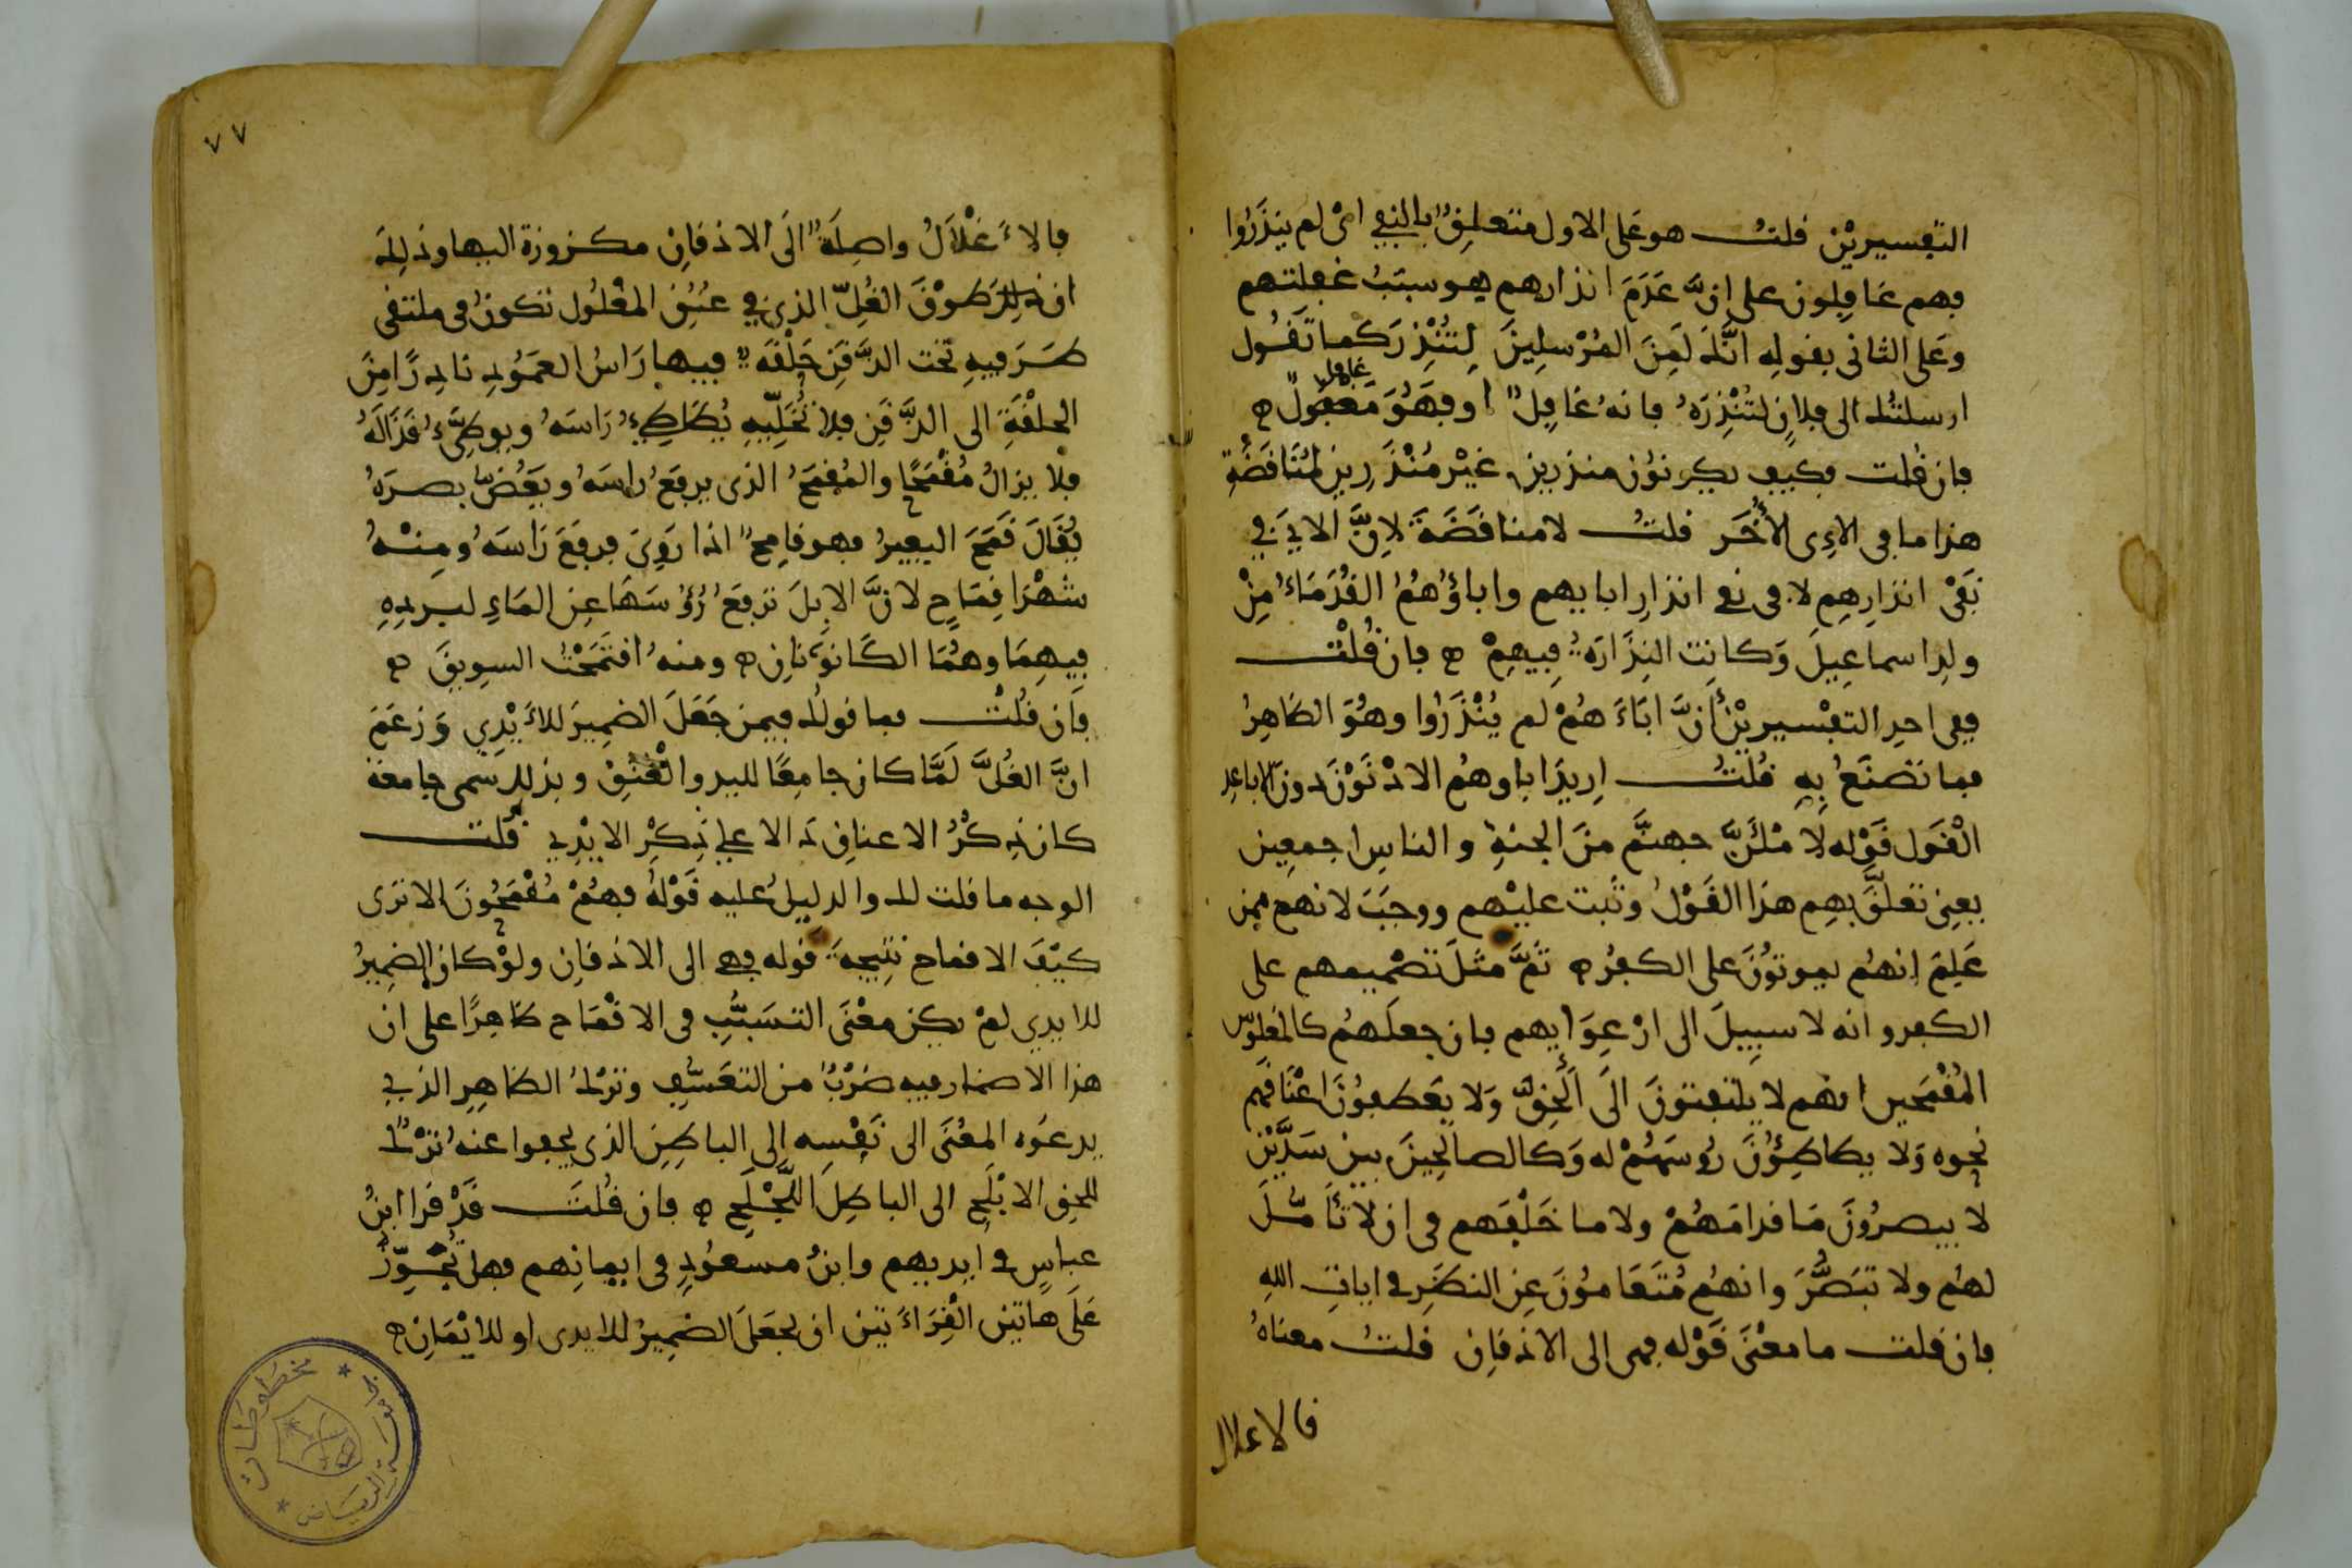 التفسيرين قلت هو على الاول متعلق بالنفي اى لم ينذروا
فهم غافلون على ان عدم انذارهم هو سبب غفلتهم
وعلى الثانى بقوله انك لمن المرسلين لتنذر كما تقول
غافل
ارسلتك الى فلان لتنذره فانه غافل او فهو
فان قلت فكيف يكونون منذرين غير منذرين لمناقضة
هذا ما فى الاى الأخر قلت لا مناقضة لان الاي في
نفى انذارهم لا فى نفي انذار ابايهم واباؤهم القدماء من
ولد اسماعيل وكانت النذارة فيهم فان قلت
ففى احد التفسيرين أن اباءهم لم ينذروا وهو الظاهر
فما تصنع به قلت اريد اباوهم الادنون دون الاباعد
القول قوله لأملأن جهنم من الجنة والناس اجمعين
يعنى تعلق بهم هذا القول وثبت عليهم ووجب لانهم ممن
علم انهم يموتون على الكفر ثم مثل تصميمهم على
الكفر وانه لا سبيل الى ارعوايهم بان جعلهم كالمغلولين
المقمحين انهم لا يلتفتون الى ألحق ولا يعطفون اعناقهم
نحوه ولا يطاطؤن رؤسهم له وكالصالحين بين سدين
لا يبصرون ما قدامهم ولا ما خلفهم فى ان لا تأمل
لهم ولا تبصر وانهم متعامون عن النظر في ايات الله
فان قلت ما معنى قوله فهى الى الاذقان قلت معناه
فالاغلال
٧٧
فالاغلال واصلة الى الاذقان مكزوزة اليها وذلك
ان طوق الغل الذي في عنق المغلول تكون فى ملتقى
طرفيه تحت الذقن حلقة فيها راس العمود نادرا من
الحلقة الى الذقن فلا تخليه يطاطئ راسه ويوطئ قذاله
فلا يزال مقمحا والمقمح الذى يرفع راسه ويغض بصره
يقال قمح البعير فهو قامح اذا روى فرفع راسه ومنه
شهرا قماح لان الابل ترفع رؤسها عن الماء لبرده
فيهما وهما الكانونان ومنه اقتمحت السويق
فان قلت فما قولك فيمن جعل الضمير للأيدي وزعم
ان الغل لما كان جامعا لليد والعنق وبذلك سمى جامعة
كان ذكر الاعناق دالا على ذكر الايدي قلت
الوجه ما قلت لك والدليل عليه قوله فهم مقمحون الا ترى
كيف الاقماح نتيجة قوله فهي الى الاذقان ولو كان الضمير
للايدي لم يكن معنى التسبب فى الاقماح ظاهرا على ان
هذا الاضمار فيه ضرب من التعسف وترك الظاهر الذي
يدعوه المعنى الى نفسه الى الباطن الذى يجفوا عنه ترك
للحق الابلج الى الباطل اللجلج فان قلت قد قرا ابن
عباس في ايديهم وابن مسعود فى ايمانهم فهل تجوز
على هاتين القراءتين ان يجعل الضمير للايدى او للايمان
مخطوطات
جامعة الرياض